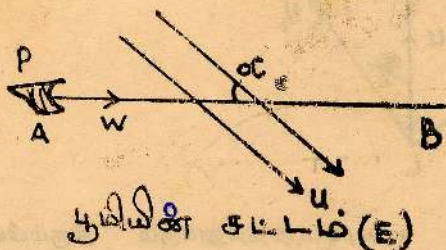 P
α
A
W
B
u
பூமியின் சட்டம் (E)